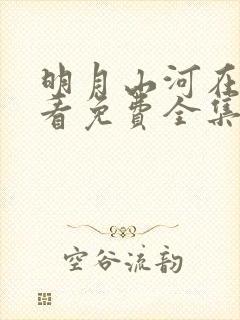 明月山河在
看免费全集
空谷流韵